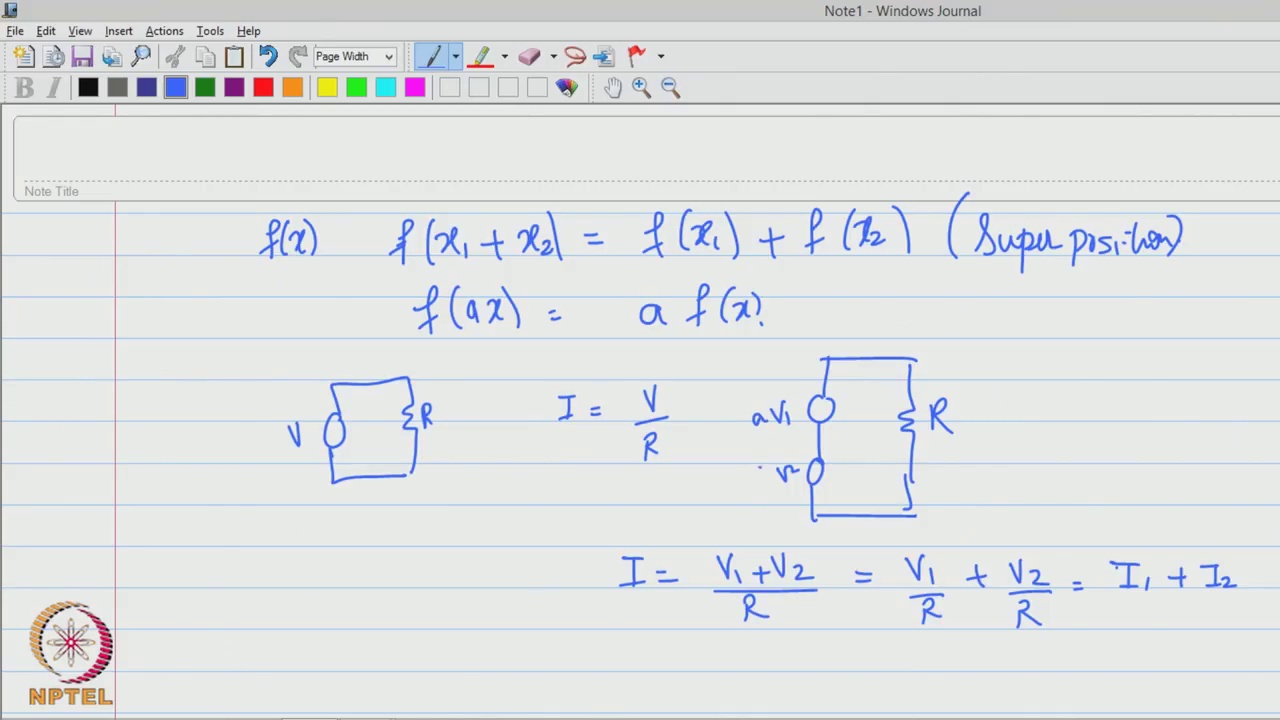 Note1 - Windows Journal
File Edit View Insert Actions Tools Help
Page Width
B I
Note Title
f(x) f(x1 + x2) = f(x1) + f(x2) (Superposition)
f(ax) = a f(x)
V R I = V/R aV1 R
V2
I = V1+V2/R = V1/R + V2/R = I1 + I2
NPTEL